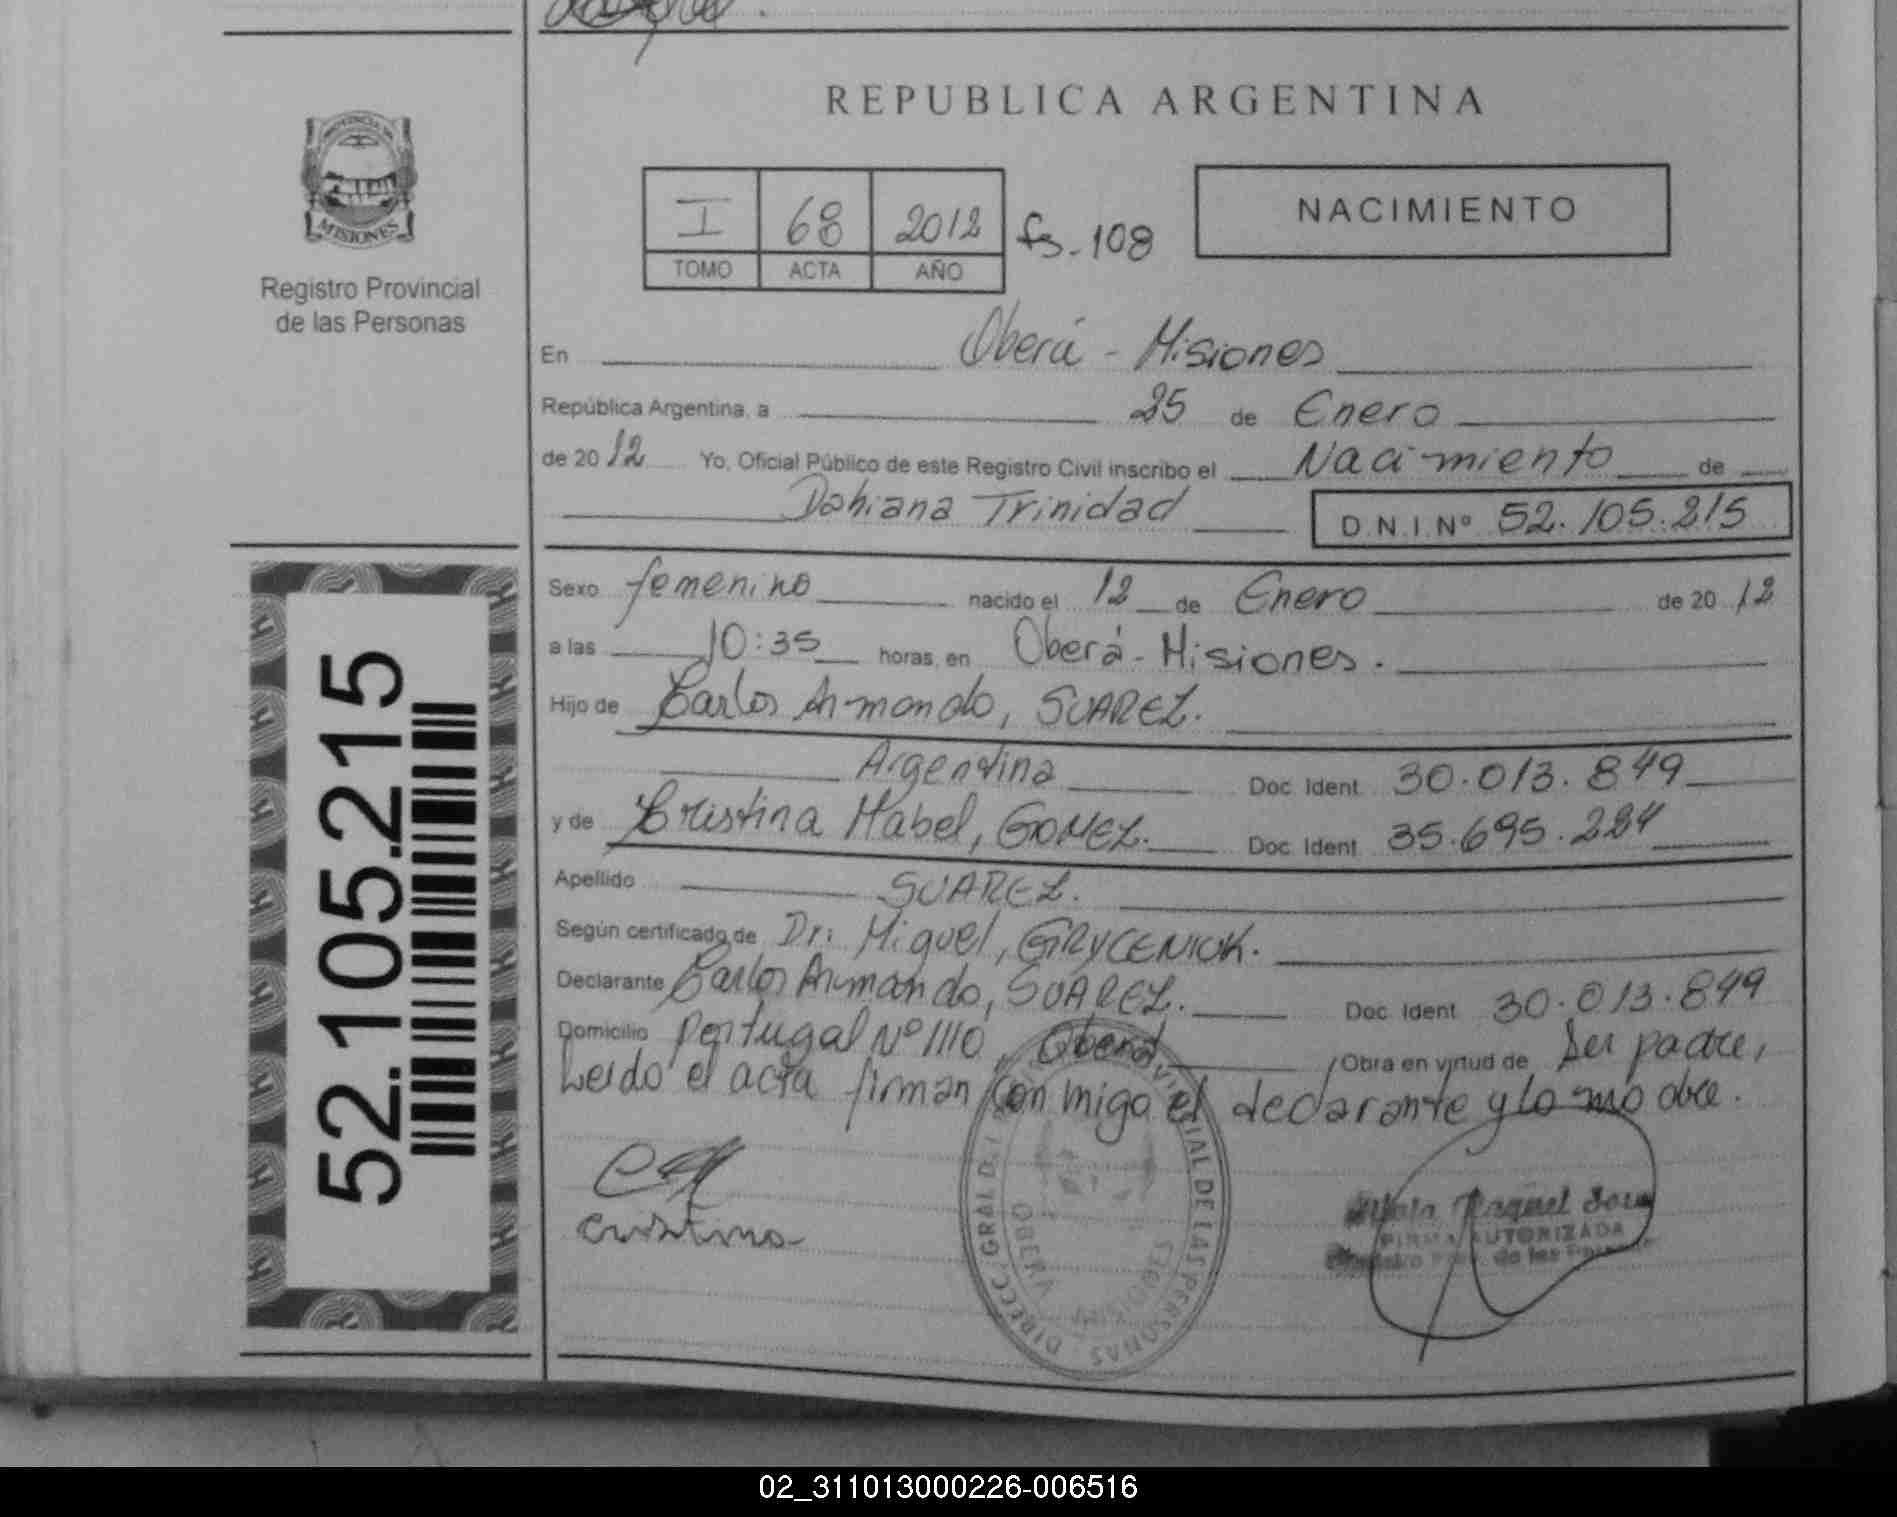 REPUBLICA ARGENTINA
PROVINCIA DE
MISIONES
Registro Provincial
de las Personas
I 68 2012 fs-108
TOMO ACTA AÑO
NACIMIENTO
En Oberá - Misiones
República Argentina, a 25 de Enero
de 2012 Yo, Oficial Público de este Registro Civil inscribo el Nacimiento de
Dahiana Trinidad D.N.I. Nº 52.105.215
52.105.215
Sexo femenino nacido el 12 de Enero de 2012
a las 10:35 horas, en Oberá - Misiones.
Hijo de Carlos Armando, SUAREZ.
Argentina Doc. Ident. 30.013.849
y de Cristina Mabel, GOMEZ. Doc. Ident. 35.695.224
Apellido SUAREZ.
Según certificado de Dr: Miguel, GRYCENIUK.
Declarante Carlos Armando, SUAREZ. Doc. Ident. 30.013.849
Domicilio Portugal Nº 1110, Oberá Obra en virtud de Ser padre,
Leido el acta firman conmigo el declarante y la madre.
Cristina
DIRECC. GRAL D. PROVINCIAL DE LAS PERSONAS
OBERA MISIONES
Raquel
FIRMA AUTORIZADA
de las
02_311013000226-006516